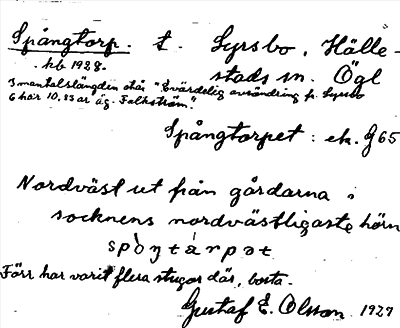 Spångtorp. t. Lyrsbo, Hälle-
stads sn. Ögl
hb 1928.
I mantalslängden står "Evärdelig avsöndring fr. Lyrsbo
6 har 10.83 ar äg. Falkström."
Spångtorpet: ek. G65
Nordväst ut från gårdarna i
socknens nordvästligaste hörn
spòŋtàrpət
Förr har varit flera stugor där, borta.
Gustaf E. Olsson 1927